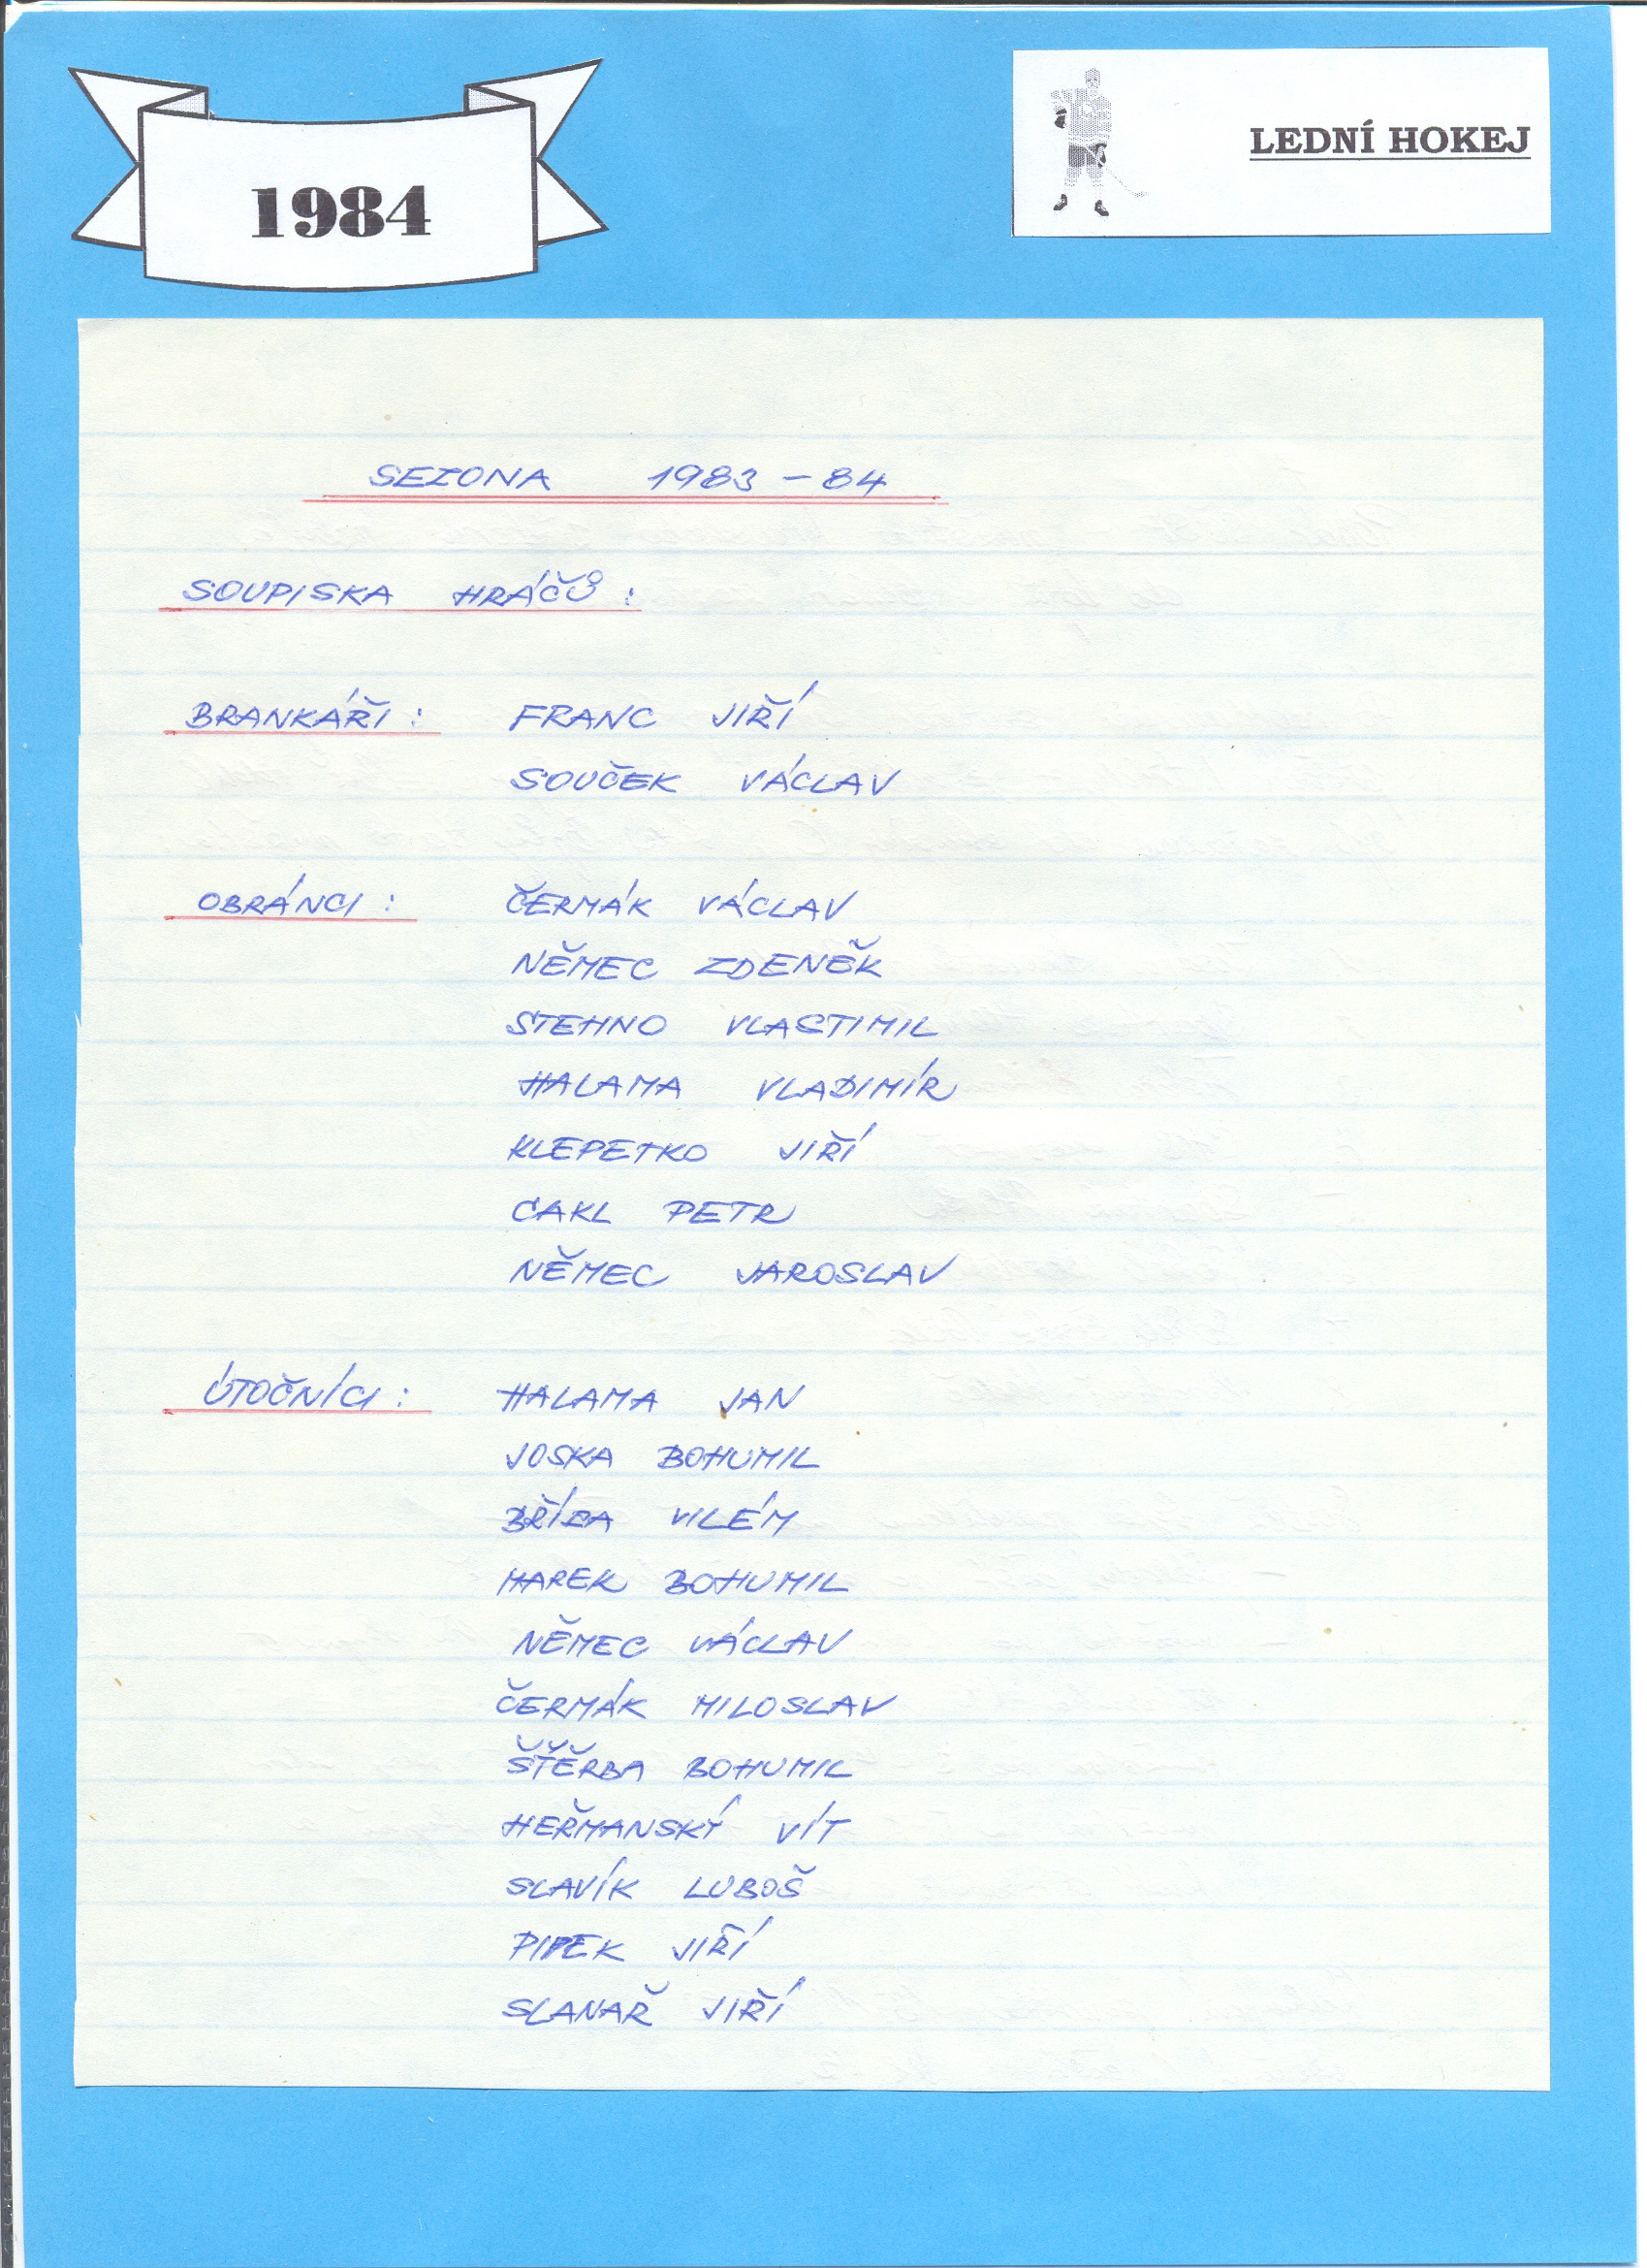 1984
LEDNÍ HOKEJ
SEZONA 1983 - 84
SOUPISKA HRÁČŮ :
BRANKÁŘI : FRANC JIŘÍ
SOUČEK VÁCLAV
OBRÁNCI : ČERMÁK VÁCLAV
NĚMEC ZDENĚK
STEHNO VLASTIMIL
HALAMA VLADIMÍR
KLEPETKO JIŘÍ
CAKL PETR
NĚMEC JAROSLAV
ÚTOČNÍCI : HALAMA JAN
JOSKA BOHUMIL
BŘÍZA VILÉM
MAREK BOHUMIL
NĚMEC VÁCLAV
ČERMÁK MILOSLAV
ŠTĚRBA BOHUMIL
HEŘMANSKÝ VÍT
SLAVÍK LUBOŠ
PIPEK JIŘÍ
SLANAŘ JIŘÍ